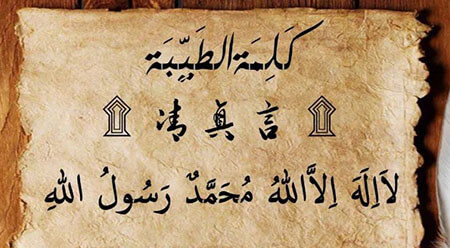 كَلِمَة الطَيِّبَة
۩ 清真言 ۩
لاَاِلَهَ اِلاَّاللهُ مُحَمَّدٌ رَسُولُ اللهِ